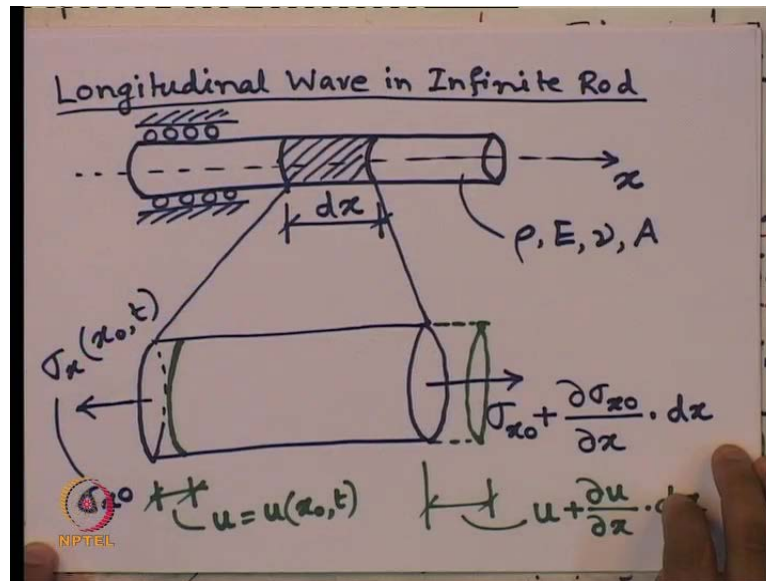 Longitudinal Wave in Infinite Rod
x
dx
ρ, E, ν, A
σx(x0,t)
σx0 + ∂σx0/∂x · dx
σx0
u = u(x0,t)
u + ∂u/∂x · dx
NPTEL